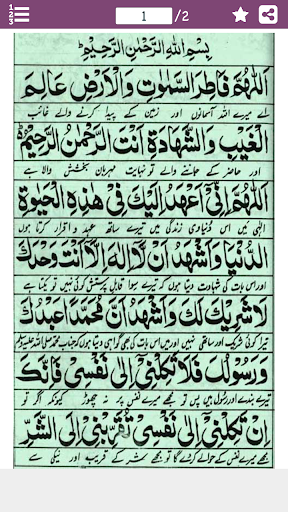 1 / 2
بِسْمِ اللهِ الرَّحْمٰنِ الرَّحِيْمِ
اَللّٰهُمَّ فَاطِرَ السَّمٰوٰتِ وَالْاَرْضِ عَالِمَ
اے میرے اللہ آسمانوں اور زمین کے پیدا کرنے والے غائب
الْغَيْبِ وَالشَّهَادَةِ اَنْتَ الرَّحْمٰنُ الرَّحِيْمُ
اور حاضر کے جاننے والے تو نہایت مہربان بخشش والا ہے
اَللّٰهُمَّ اِنِّيْ اَعْهَدُ اِلَيْكَ فِيْ هٰذِهِ الْحَيٰوةِ
الٰہی میں اس دنیاوی زندگی میں تیرے ساتھ عہد و اقرار کرتا ہوں
الدُّنْيَا وَاَشْهَدُ اَنْ لَّا اِلٰهَ اِلَّا اَنْتَ وَحْدَكَ
اور اس بات کی شہادت دیتا ہوں کہ تیرے سوا قابل پرستش کوئی نہیں تو یکتا ہے
لَا شَرِيْكَ لَكَ وَاَشْهَدُ اَنَّ مُحَمَّدًا عَبْدُكَ
تیرا کوئی شریک اور ساتھی نہیں اور میں اس بات کی بھی گواہی دیتا ہوں کہ جناب محمد صلی اللہ علیہ وسلم
وَرَسُوْلُكَ فَلَا تَكِلْنِيْ اِلٰى نَفْسِيْ فَاِنَّكَ
تیرے بندے اور رسول ہیں پس تو مجھے میرے نفس پر نہ چھوڑ کیونکہ اگر تو
اِنْ تَكِلْنِيْ اِلٰى نَفْسِيْ تُقَرِّبْنِيْ اِلَى الشَّرِّ
مجھے میرے نفس کے حوالے کر دے گا تو مجھے شر کے قریب اور نیکی سے